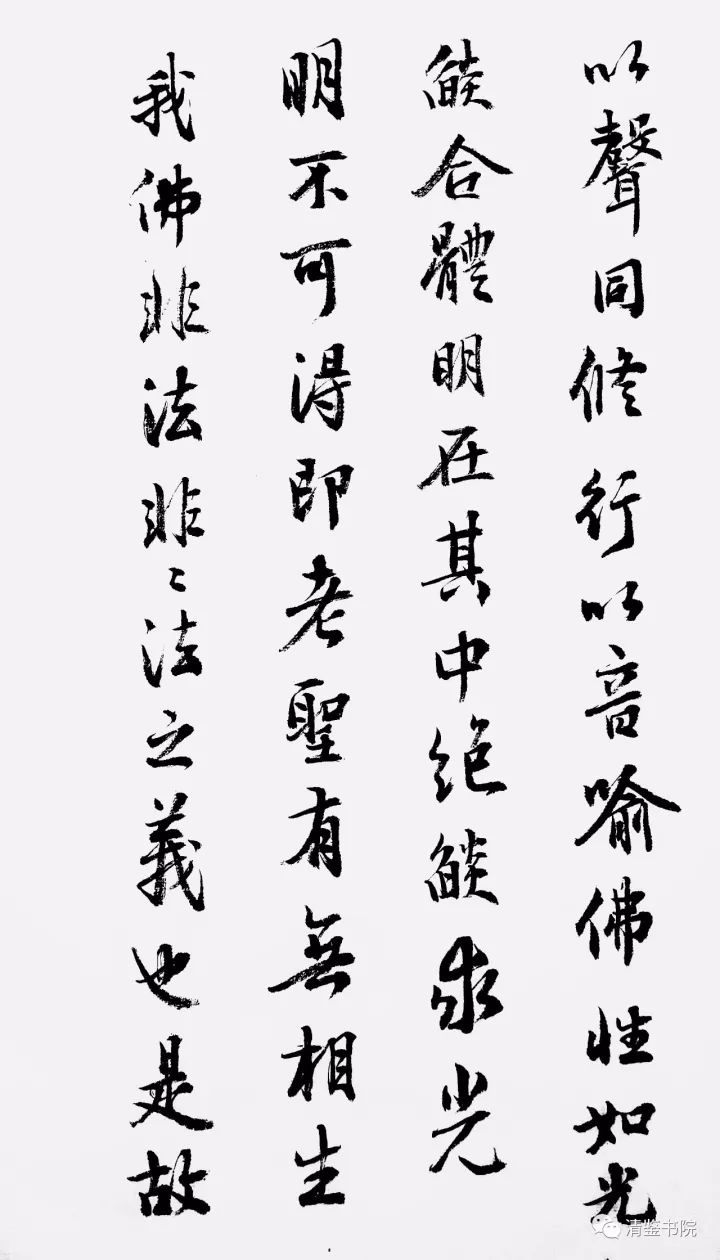 以聲同修行以音喻佛性如光
燄合體明在其中絕燄求光
明不可得即老聖有無相生
我佛非法非〻法之義也是故
清鉴书院